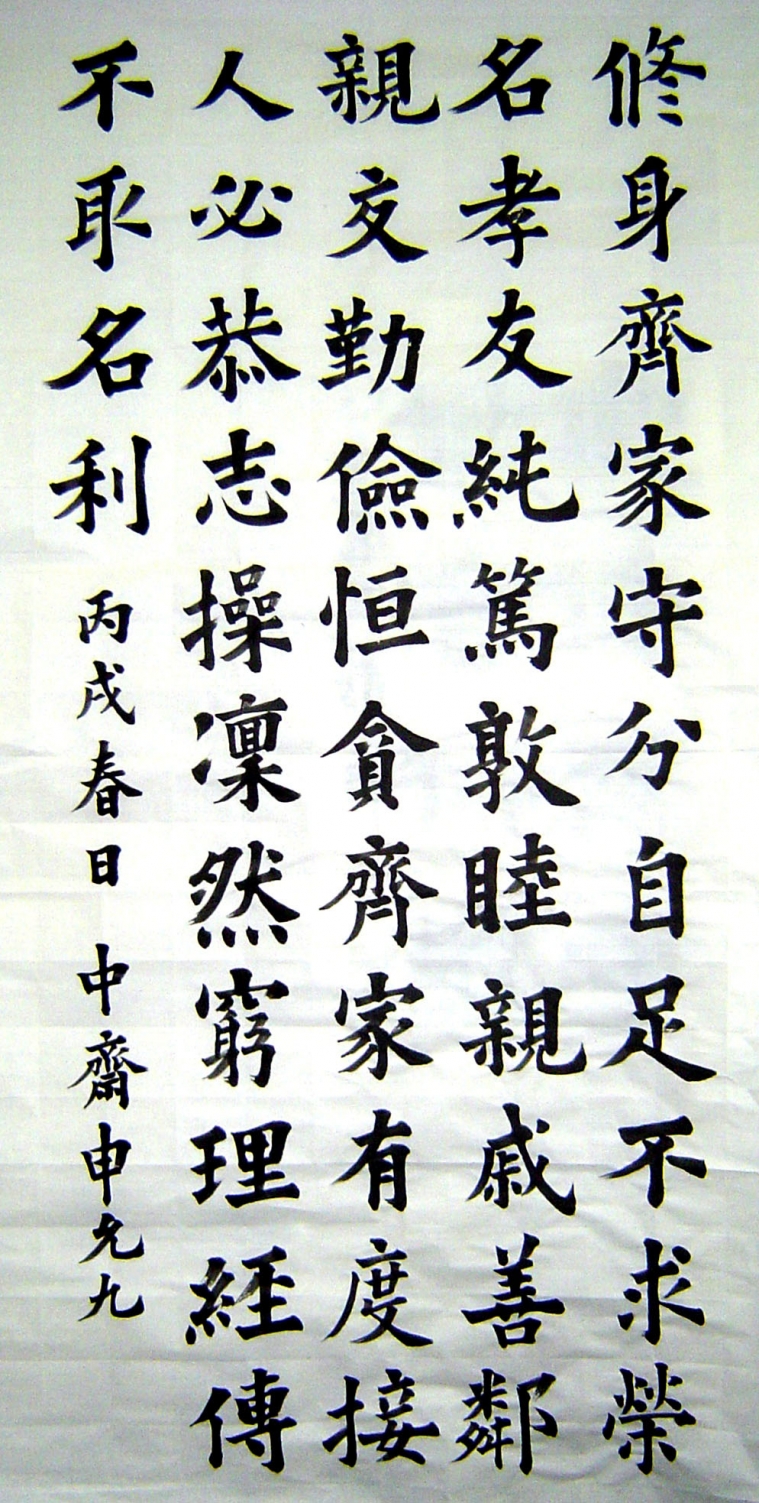 修身齊家守分自足不求榮
名孝友純篤敦睦親戚善鄰
親交勤儉恒貪齊家有度接
人必恭志操凜然窮理經傳
不取名利 丙戌春日 中齋申允九